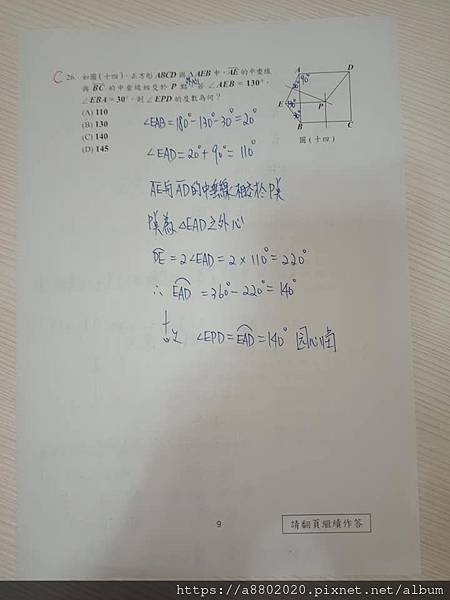 C 26. 如圖(十四)，正方形 ABCD 與 △AEB 中，AE 的中垂線
與 BC 的中垂線相交於 P 點。若 ∠AEB = 130°，
外心
∠EBA = 30°，則 ∠EPD 的度數為何？
(A) 110
(B) 130
(C) 140
(D) 145
A
D
90°
20°
E
P
B
C
圖(十四)
∠EAB = 180° - 130° - 30° = 20°
∠EAD = 20° + 90° = 110°
AE 與 AD 的中垂線相交於 P 點
P 點為 △EAD 之外心
DE = 2∠EAD = 2 × 110° = 220°
∴ EAD = 360° - 220° = 140°
故 ∠EPD = EAD = 140° 圓心角
9
請翻頁繼續作答
https://a8802020.pixnet.net/album